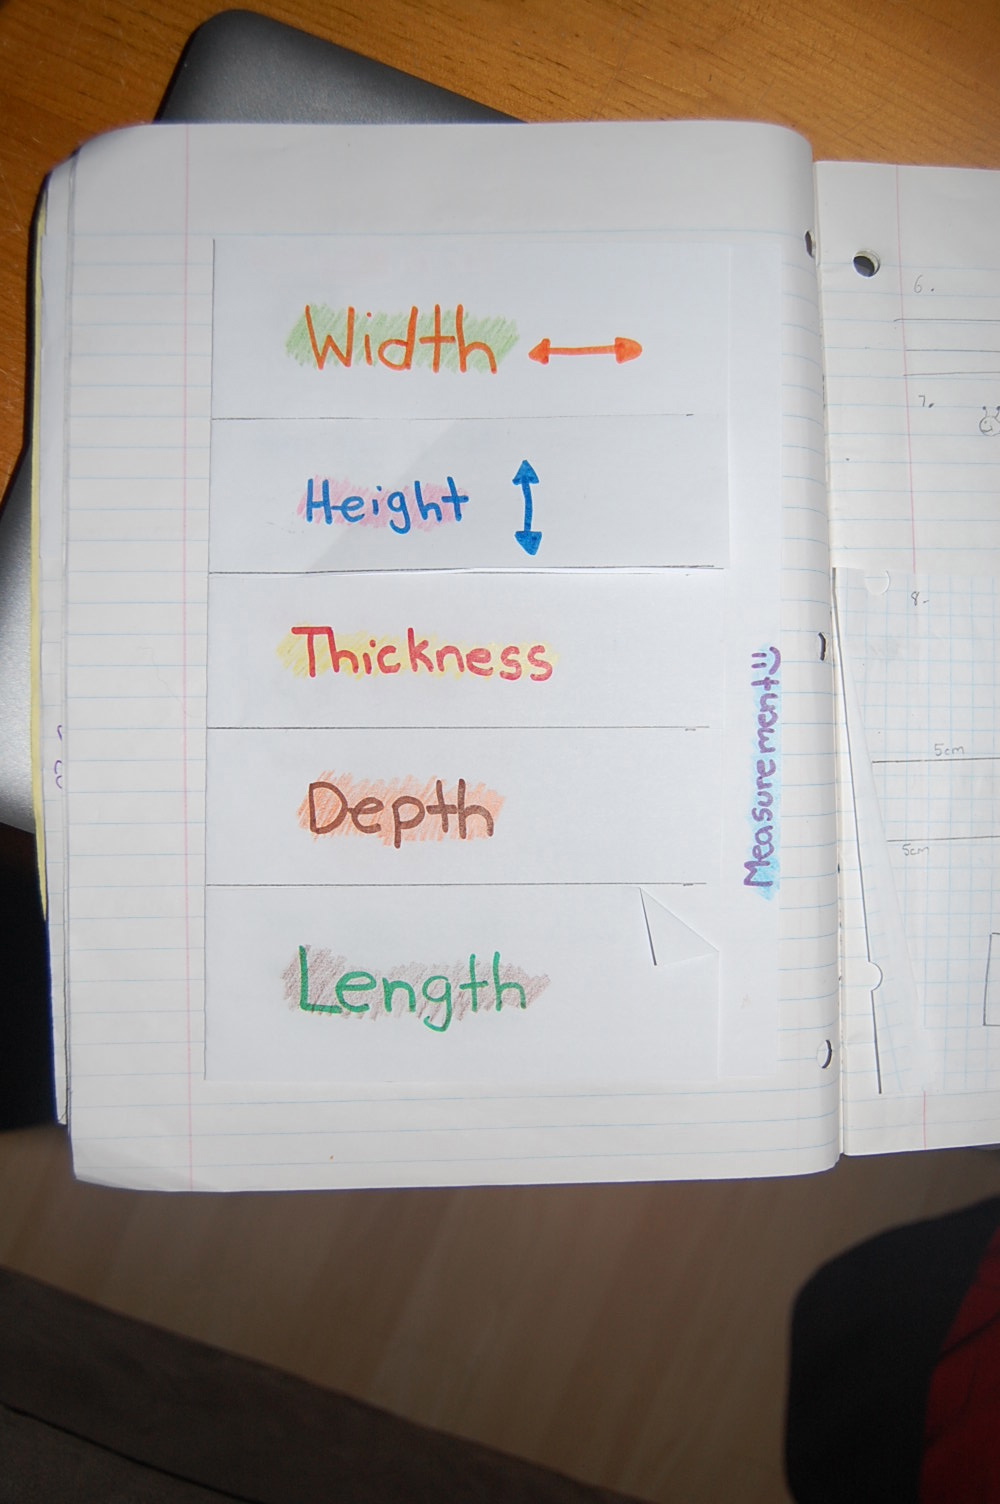 Width
Height
Thickness
Depth
Length
Measurement
6.
7.
8.
5cm
5cm